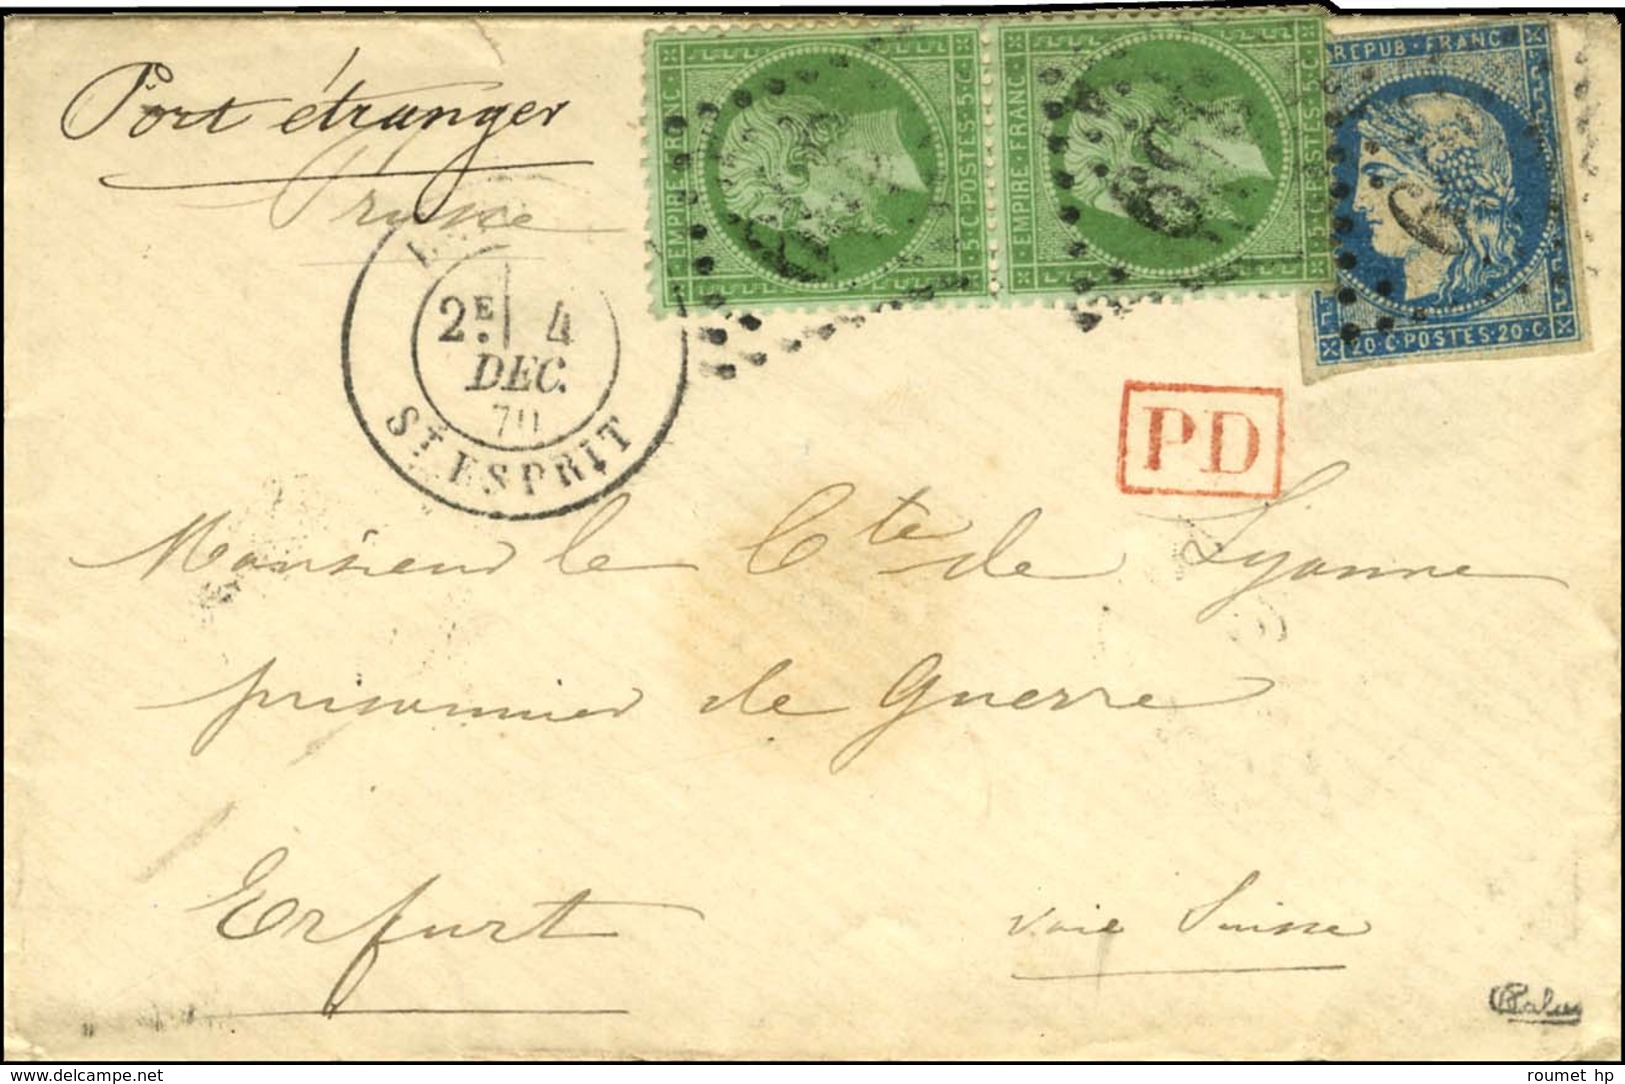 Port étranger
Prusse
EMPIRE FRANC
5 C. POSTES 5 C.
EMPIRE FRANC
5 C. POSTES 5 C.
REPUB FRANC
20 C POSTES 20 C
2E 4
DEC.
70
ST ESPRIT
PD
Monsieur le Cte de Lyonne
prisonnier de Guerre
Erfurt
voie Suisse
Calves
roumet hp